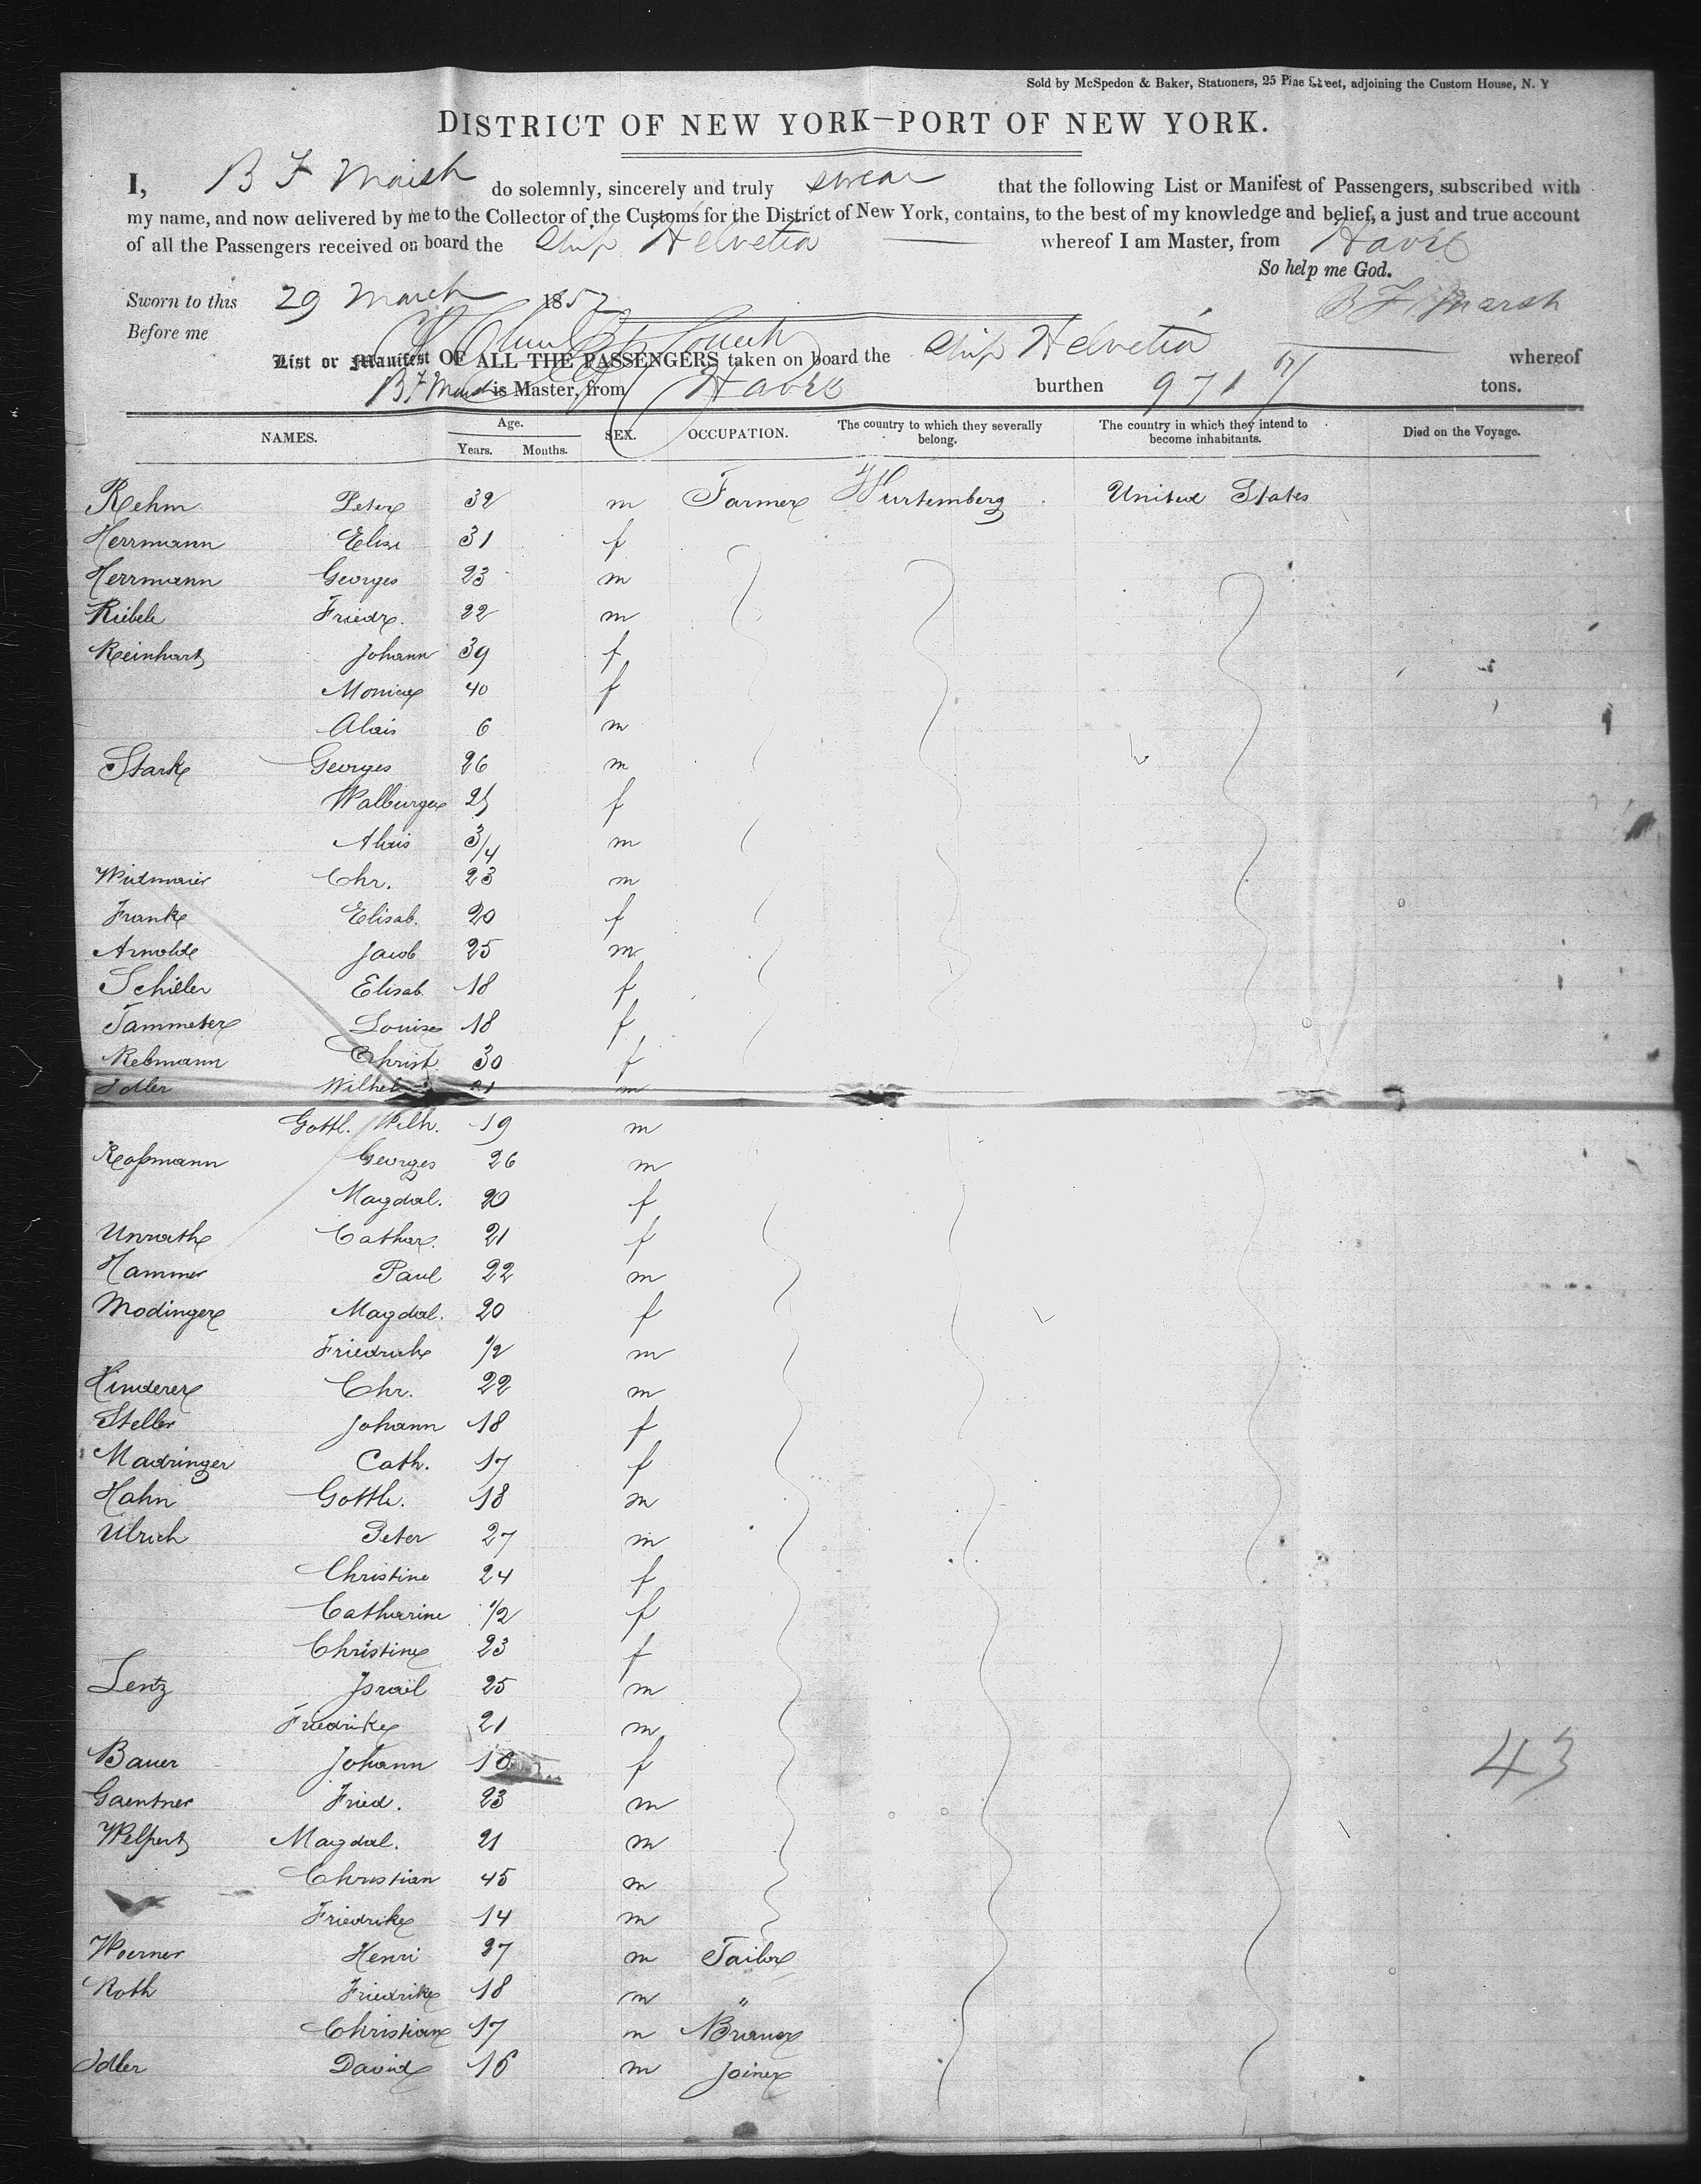 Sold by McSpedon & Baker, Stationers, 25 Pine Street, adjoining the Custom House, N. Y
DISTRICT OF NEW YORK—PORT OF NEW YORK.
I, B F Marsh do solemnly, sincerely and truly swear that the following List or Manifest of Passengers, subscribed with
my name, and now delivered by me to the Collector of the Customs for the District of New York, contains, to the best of my knowledge and belief, a just and true account
of all the Passengers received on board the Ship Helvetia whereof I am Master, from Havre
So help me God.
Sworn to this 29 March 1852 B F Marsh
Before me
List or Manifest OF ALL THE PASSENGERS taken on board the Ship Helvetia whereof
B F Marsh is Master, from Havre burthen 971 tons.
NAMES. Age. Years. Months. SEX. OCCUPATION. The country to which they severally belong. The country in which they intend to become inhabitants. Died on the Voyage.
Rehm Peter 32 m Farmer Wurtemberg United States
Herrmann Elise 31 f
Herrmann Georges 23 m
Riebele Friedr. 22 m
Reinhart Johann 39 f
Monica 40 f
Alois 6 m
Stark Georges 26 m
Walburga 25 f
Alois 3/4 m
Widmaier Chr. 23 m
Frank Elisab. 20 f
Arnold Jacob 25 m
Schieler Elisab. 18 f
Tammeter Louise 18 f
Rebmann Christ. 30 f
Idler Wilhel 21 m
Gottl. Wilh. 19 m
Roßmann Georges 26 m
Magdal. 20 f
Unrath Cathar. 21 f
Hammer Paul 22 m
Modinger Magdal. 20 f
Friedrich 1/2 m
Hinderer Chr. 22 m
Steller Johann 18 f
Madringer Cath. 17 f
Hahn Gottl. 18 m
Ulrich Peter 27 m
Christine 24 f
Catharine 1/2 f
Christine 23 f
Lentz Israël 25 m
Friedrike 21 m
Bauer Johann f
Gaentner Fried. 23 m
Welpert Magdal. 21 m
Christian 45 m
Friedrike 14 m
Woerner Henri 27 m Tailor
Roth Friedrike 18 m "
Christian 17 m
Idler David 16 m Joiner
43